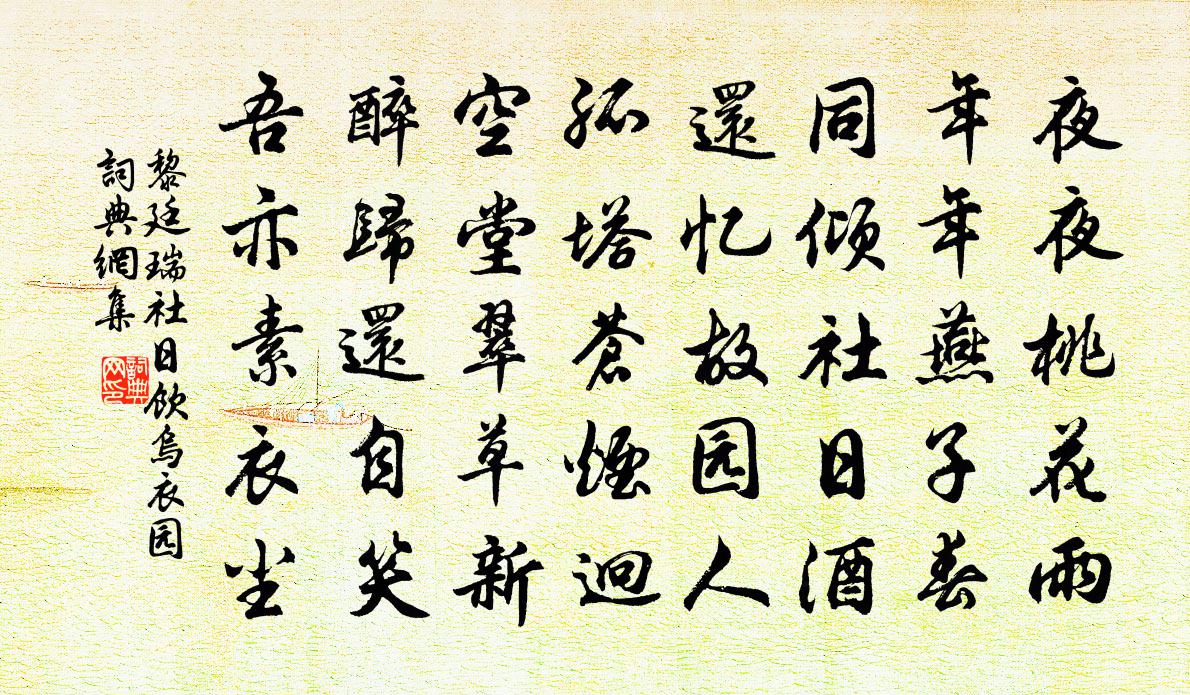 夜夜桃花雨
年年燕子春
同倾社日酒
還忆故园人
孤塔蒼煙迥
空堂翠草新
醉歸還自笑
吾亦素衣尘
黎廷瑞社日飲烏衣园
詞典網集
詞典
网印